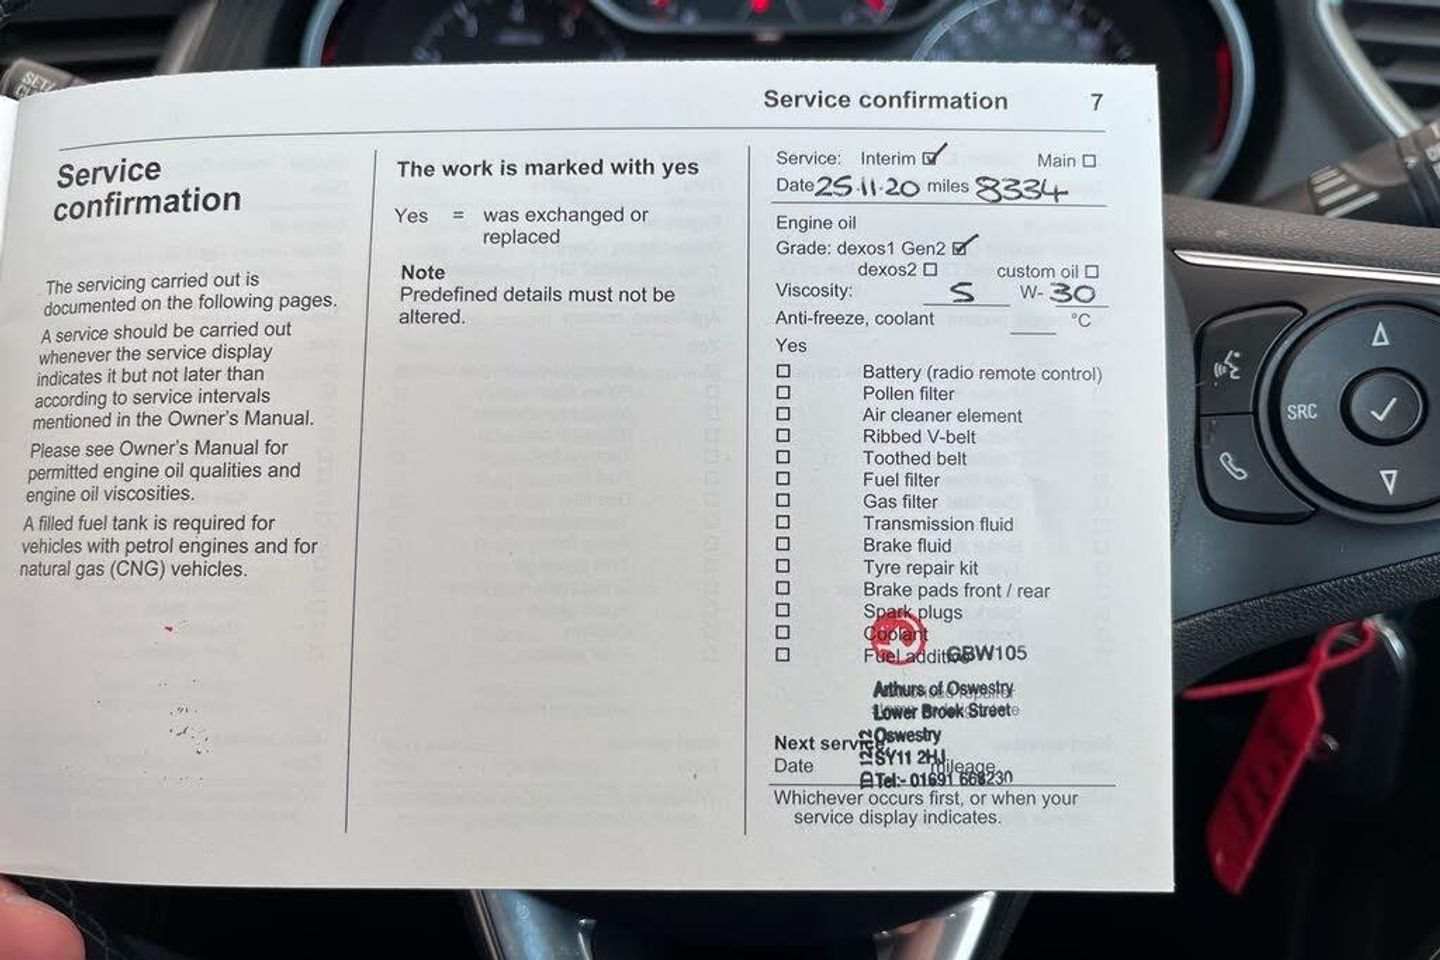 Service confirmation 7
Service
confirmation
The servicing carried out is
documented on the following pages.
A service should be carried out
whenever the service display
indicates it but not later than
according to service intervals
mentioned in the Owner's Manual.
Please see Owner's Manual for
permitted engine oil qualities and
engine oil viscosities.
A filled fuel tank is required for
vehicles with petrol engines and for
natural gas (CNG) vehicles.
The work is marked with yes
Yes = was exchanged or
replaced
Note
Predefined details must not be
altered.
Service: Interim ☑ Main ☐
Date 25.11.20 miles 8334
Engine oil
Grade: dexos1 Gen2 ☑
dexos2 ☐ custom oil ☐
Viscosity: 5 W- 30
Anti-freeze, coolant °C
Yes
☐ Battery (radio remote control)
☐ Pollen filter
☐ Air cleaner element
☐ Ribbed V-belt
☐ Toothed belt
☐ Fuel filter
☐ Gas filter
☐ Transmission fluid
☐ Brake fluid
☐ Tyre repair kit
☐ Brake pads front / rear
☐ Spark plugs
☐ Coolant
☐ Fuel additive
GBW105
Arthurs of Oswestry
Lower Brook Street
Oswestry
SY11 2HJ
Tel:- 01691 668230
Next service
Date mileage
Whichever occurs first, or when your
service display indicates.
SRC
SET/